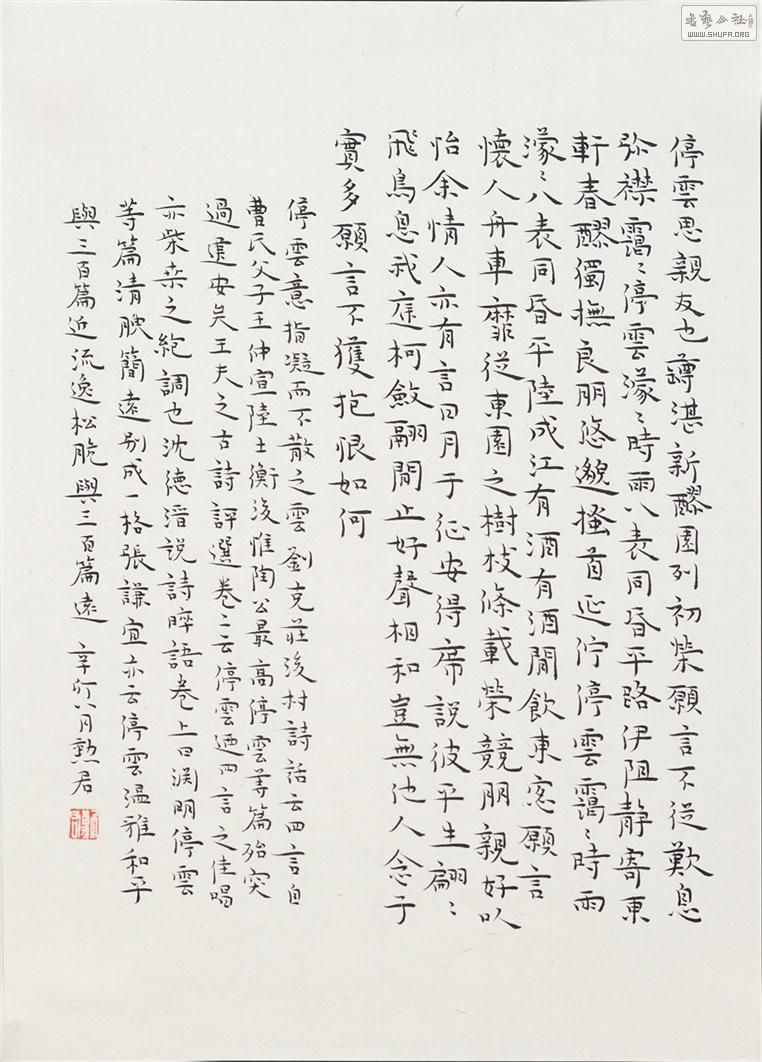 停雲思親友也罇湛新醪園列初榮願言不從歎息
弥襟靄〻停雲濛〻時雨八表同昏平路伊阻静寄東
軒春醪獨撫良朋悠邈搔首延佇停雲靄〻時雨
濛〻八表同昏平陸成江有酒有酒閒飲東窓願言
懷人舟車靡從東園之樹枝條載榮競朋親好以
怡余情人亦有言日月于征安得席說彼平生翩〻
飛鳥息我庭柯斂翮閒止好聲相和豈無他人念子
實多願言不獲抱恨如何
停雲意指凝而不散之雲劉克莊後村詩話云四言自
曹氏父子王仲宣陸士衡後惟陶公最高停雲等篇殆突
過建安矣王夫之古詩評選卷二云停雲迺四言之佳唱
亦柴桑之絶調也沈德潛説詩晬語卷上曰渊明停雲
等篇清腴簡遠别成一格張謙宜亦云停雲温雅和平
與三百篇近流逸松脆與三百篇遠 辛卯八月勲君
書藝公社
WWW.SHUFA.ORG